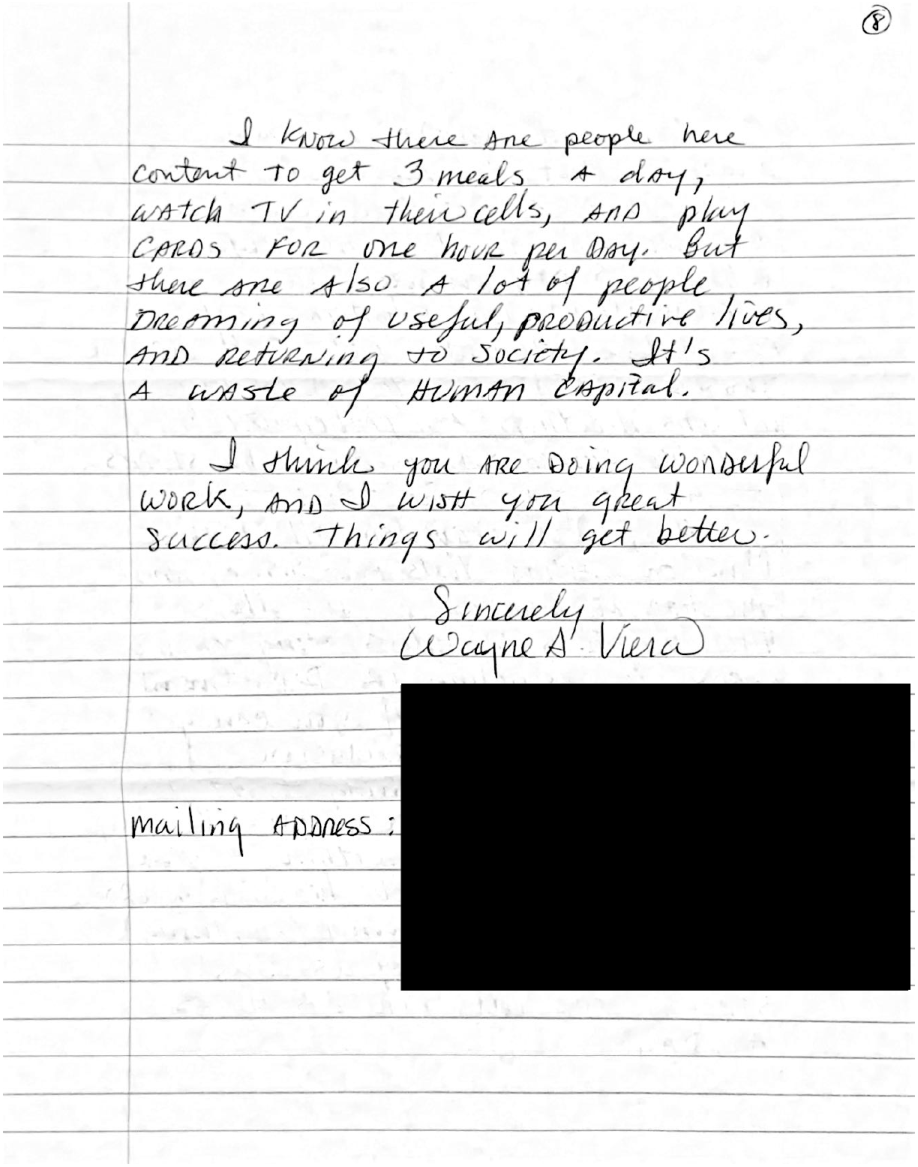 8
I know there are people here
content to get 3 meals a day,
watch TV in their cells, AND play
CARDS FOR one hour per DAY. But
there are also a lot of people
Dreaming of useful, productive lives,
AND returning to society. It's
A waste of HUMAN capital.
I think you ARE Doing wonderful
work, AND I WISH you great
success. Things will get better.
Sincerely
Wayne A. Viera
mailing ADDRESS: